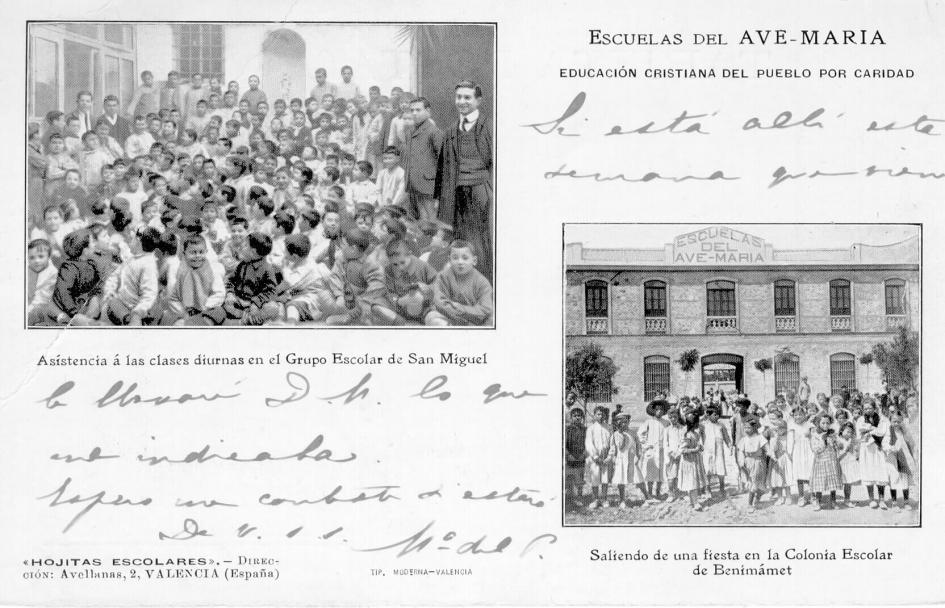 ESCUELAS DEL AVE-MARIA
EDUCACIÓN CRISTIANA DEL PUEBLO POR CARIDAD
Si está allí este
semana que vien
ESCUELAS
DEL
AVE-MARIA
Asistencia á las clases diurnas en el Grupo Escolar de San Miguel
le llevaré D. M. lo que
me indicaba.
Espero me conteste si estará
De V. S. S. Mª del P.
Saliendo de una fiesta en la Colonia Escolar
de Benimámet
«HOJITAS ESCOLARES».—DIREC-
CIÓN: Avellanas, 2, VALENCIA (España)
TIP. MODERNA—VALENCIA